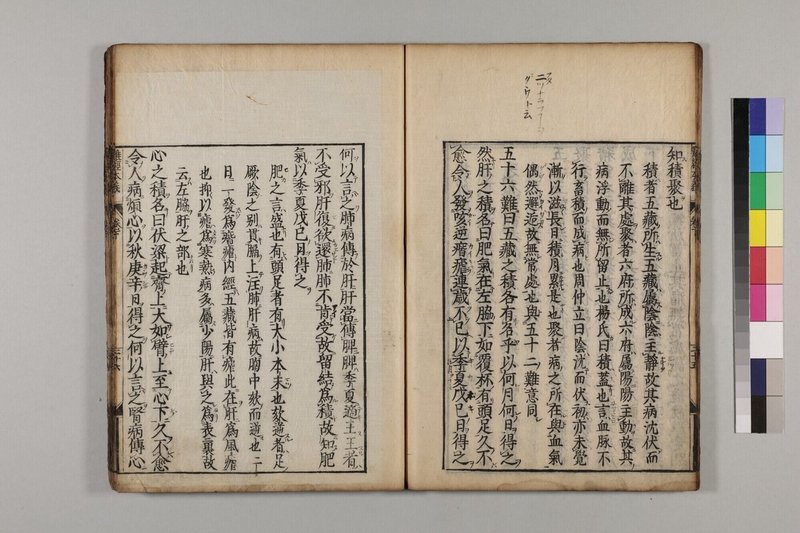 知積聚也
積者五藏所生五藏屬陰陰主靜故其病沈伏而
不離其處聚者六府所成六府屬陽陽主動故其
病浮動而無所留止也楊氏曰積蓄也言血脉不
行畜積而成病也周仲立曰陰沈而伏初亦未覺
漸以滋長日積月累是也聚者病之所在與血氣
偶然邂逅故無常處也與五十二難意同
五十六難曰五藏之積各有名乎以何月何日得之
然肝之積名曰肥氣在左脇下如覆杯有頭足久不
愈令人發咳逆㾬瘧連歲不已以季夏戊己日得之
何以言之肺病傳於肝肝當傳脾脾季夏適王王者
不受邪肝復欲還肺肺不肯受故留結為積故知肥
氣以季夏戊己日得之
肥之言盛也有頭足者有大小本末也欬逆者足
厥陰之別貫膈上注肺肝病故胸中欬而逆也二
日一發為㾬瘧内經五藏皆有瘧此在肝為風瘧
也抑以瘧為寒熱病多屬少陽肝與之為表裏故
云左脇肝之部也
心之積名曰伏梁起齊上大如臂上至心下久不愈
令人病煩心以秋庚辛日得之何以言之腎病傳心